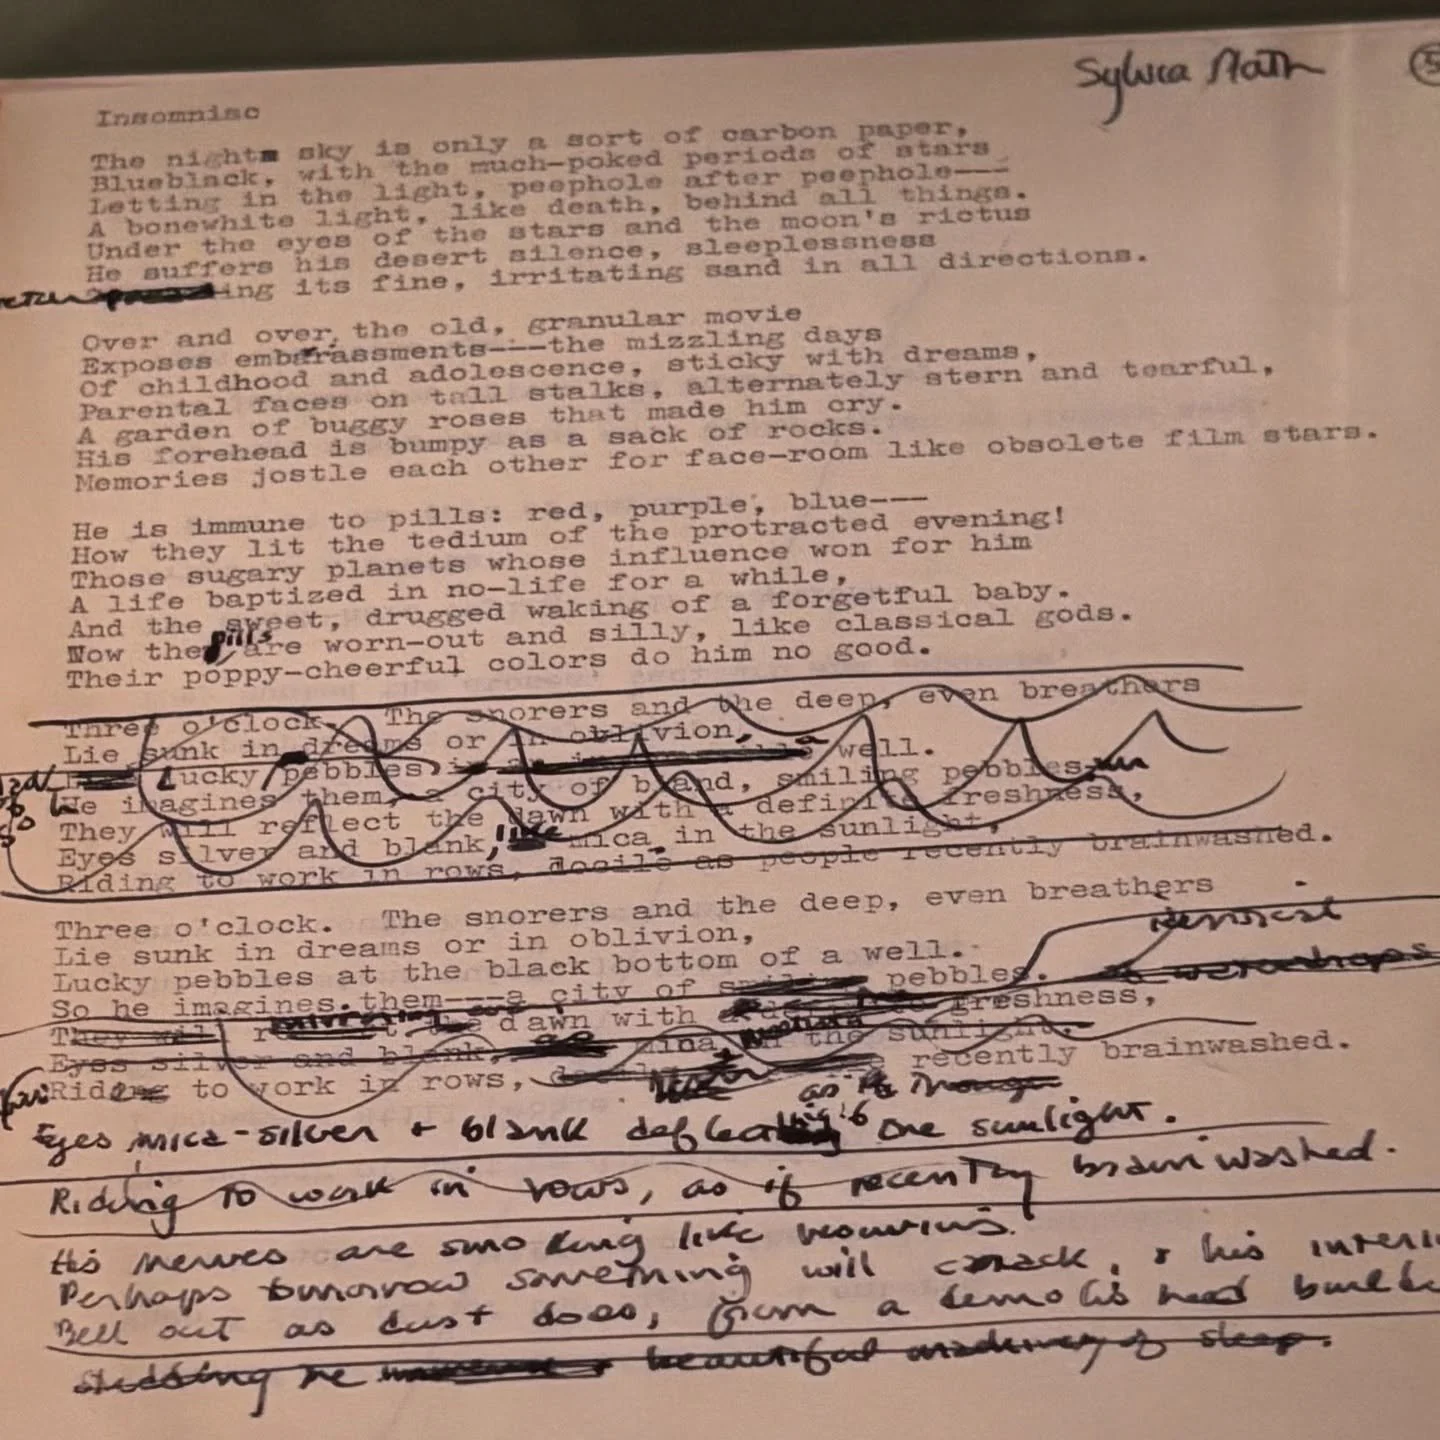 Sylvia Plath
5
Insomniac
The night sky is only a sort of carbon paper,
Blueblack, with the much-poked periods of stars
Letting in the light, peephole after peephole---
A bonewhite light, like death, behind all things.
Under the eyes of the stars and the moon's rictus
He suffers his desert silence, sleeplessness
ing its fine, irritating sand in all directions.
Over and over, the old, granular movie
Exposes embarrassments---the mizzling days
Of childhood and adolescence, sticky with dreams,
Parental faces on tall stalks, alternately stern and tearful,
A garden of buggy roses that made him cry.
His forehead is bumpy as a sack of rocks.
Memories jostle each other for face-room like obsolete film stars.
He is immune to pills: red, purple, blue---
How they lit the tedium of the protracted evening!
Those sugary planets whose influence won for him
A life baptized in no-life for a while,
And the sweet, drugged waking of a forgetful baby.
Now the pills are worn-out and silly, like classical gods.
Their poppy-cheerful colors do him no good.
Three o'clock. The snorers and the deep, even breathers
Lie sunk in dreams or in oblivion,
Lucky pebbles in well.
He imagines them, a city of bland, smiling pebbles
They will reflect the dawn with a definite freshness,
Eyes silver and blank, like mica in the sunlight,
Riding to work in rows, docile as people recently brainwashed.
Three o'clock. The snorers and the deep, even breathers
Lie sunk in dreams or in oblivion,
Lucky pebbles at the black bottom of a well.
So he imagines them---a city of pebbles.
They will dawn with freshness,
Eyes silver and blank, the sunlight.
Riding to work in rows, recently brainwashed.
as if
Eyes mica-silver + blank the sunlight.
Riding to work in rows, as if recently brainwashed.
His nerves are smoking like
Perhaps tomorrow something will crack, + his
Bell out as dust does, from a
beautiful of sleep.